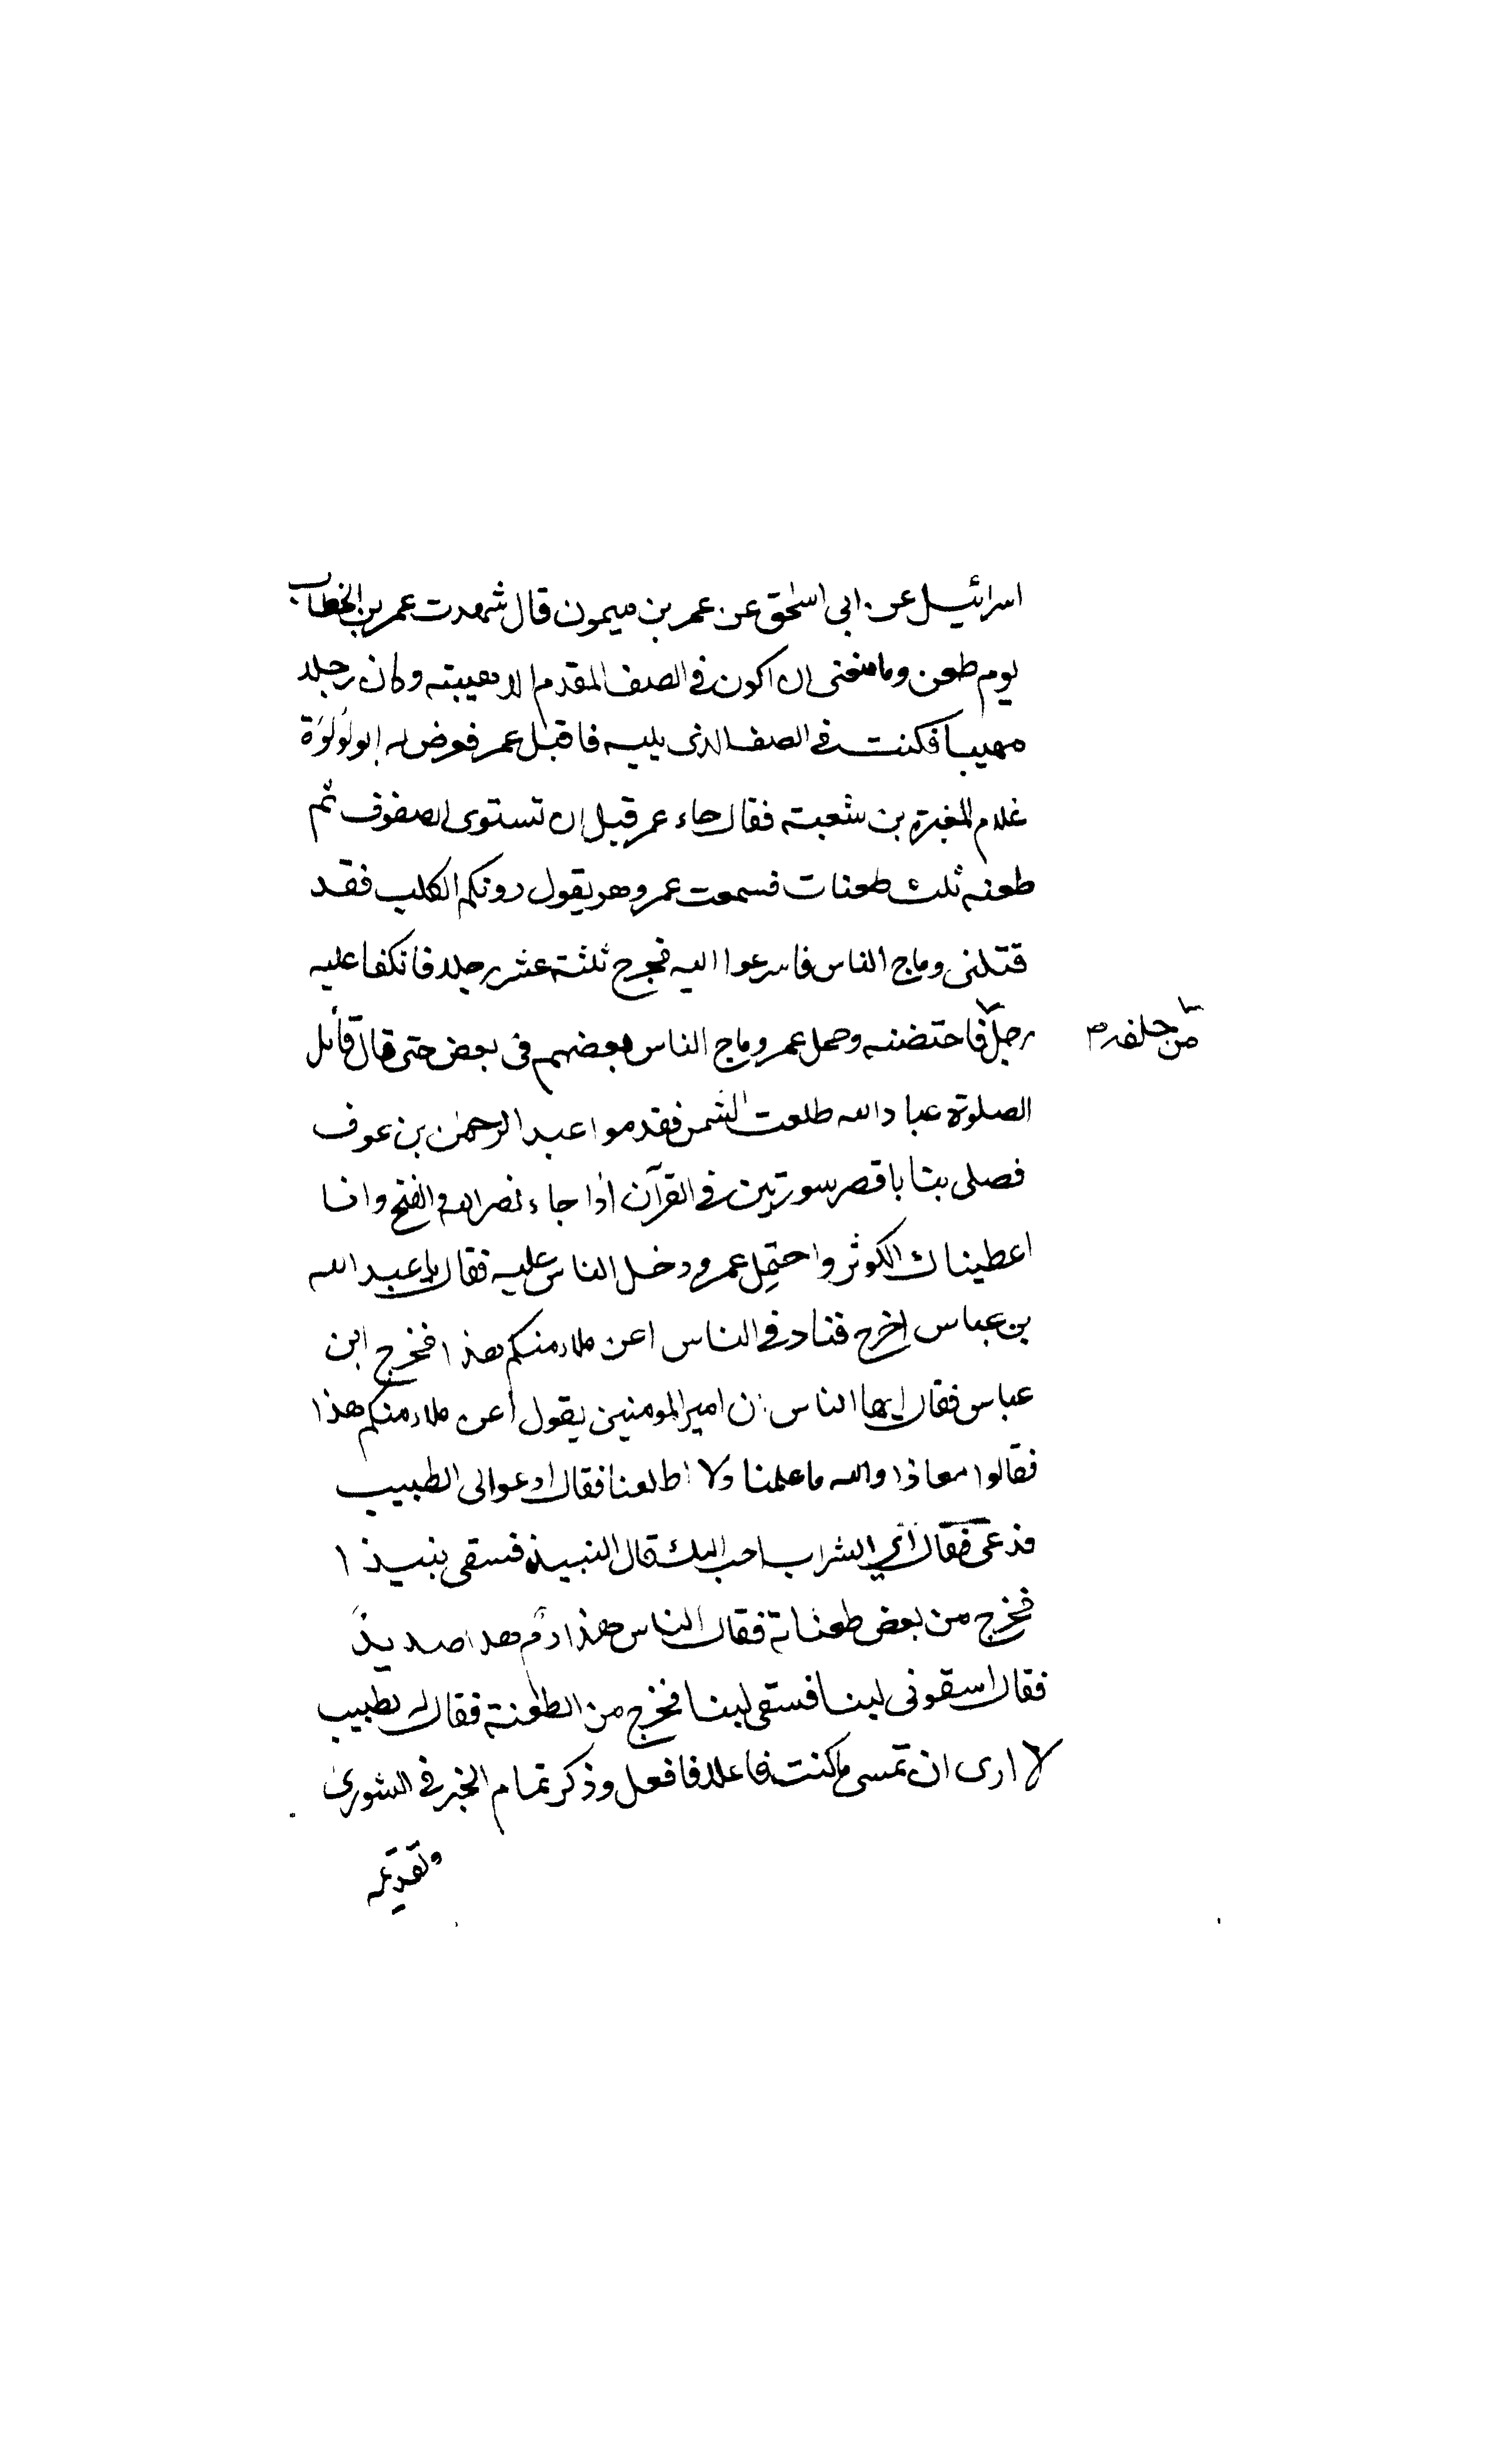 اسرائيل عن ابى اسحٰق عن عمر بن ميمون قال شهدت عمر بن الخطاب
يوم طعن وما منعنى ان اكون فى الصف المقدم الا هيبته وكان رجلا
مهيبا فكنت فى الصف الذى يليه فاقبل عمر فعرض له ابو لؤلؤة
غلام المغيرة بن شعبة فقال جاء عمر قبل ان تستوى الصفوف ثم
طعنه ثلث طعنات فسمعت عمر وهو يقول دونكم الكلب فقد
قتلنى وماج الناس فاسرعوا اليه فجرح ثلثة عشر رجلا فانكفا عليه
رجل فاحتضنه وحمل عمر وماج الناس بعضهم فى بعض حتى قال قائل
من خلفه
الصلوة عباد الله طلعت الشمس فقدموا عبد الرحمٰن بن عوف
فصلى بنا باقصر سورتين فى القرآن اذا جاء نصر الله والفتح وانا
اعطيناك الكوثر واحتمل عمر ودخل الناس عليه فقال يا عبد الله
بن عباس اخرج فناد فى الناس اعن ملاء منكم هذا فخرج ابن
عباس فقال ايها الناس ان امير المومنين يقول أعن ملاء منكم هذا
فقالوا معاذا والله ما علمنا ولا اطلعنا فقال ادعوا لى الطبيب
فدعى فقال أي الشراب احب اليك قال النبيذ فسقى بنبيذا
فخرج من بعض طعناته فقال الناس هذا دم هذا صديد
فقال اسقونى لبنا فسقى لبنا فخرج من الطعنة فقال له الطبيب
لا ارى ان تمسى ما كنت فاعلا فافعل وذكر تمام الخبر فى الشورى